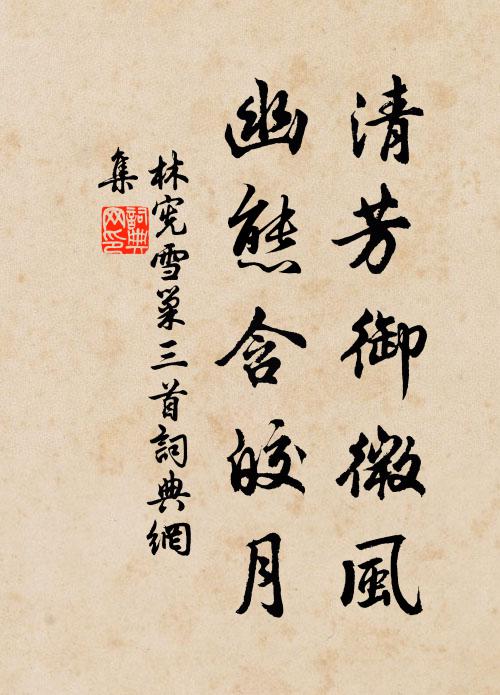 清芳御微風
幽態含皎月
林宪雪巢三首詞典網
集
詞典
网印